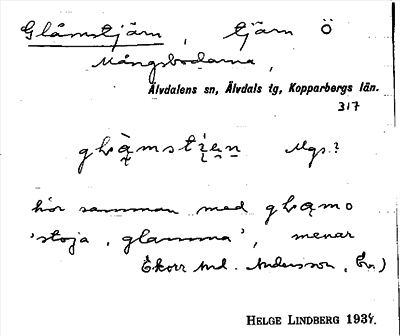 Glåmstjärn, tjärn Ö
Mångsbodarna,
Älvdalens sn, Älvdals tg, Kopparbergs län.
317
Mgs.?
hör samman med
'stoja, glamma', menar
Ekorr And. Andersson,
HELGE LINDBERG 1937.